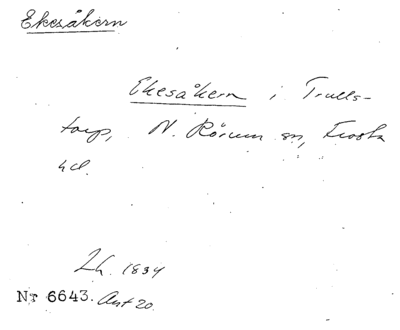 Ekesåkern
Ekesåkern i Trulls-
torp, N. Rörum sn, Frosta
hd.
Lh. 1834
Nr 6643. Ant 20.